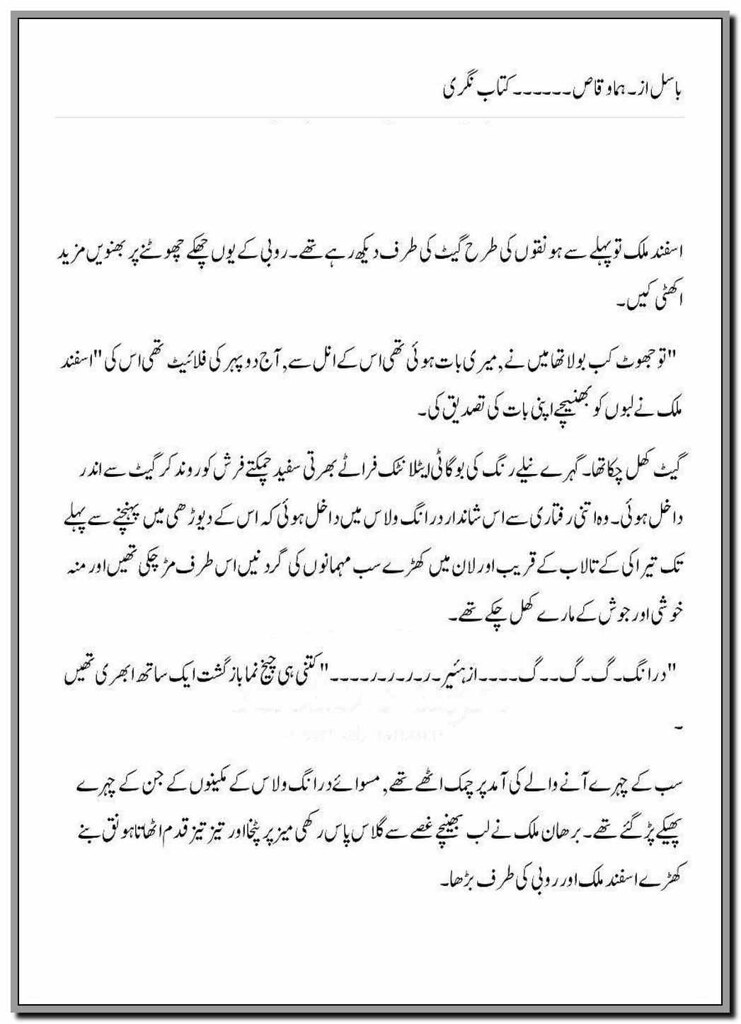 باسل از۔ ہما وقاص۔۔۔۔۔۔ کتاب نگری
اسفند ملک تو پہلے سے ہونقوں کی طرح گیٹ کی طرف دیکھ رہے تھے۔ روبی کے یوں چھکے چھوٹنے پر بھنویں مزید
اکھٹی کیں۔
"تو جھوٹ کب بولا تھا میں نے, میری بات ہوئی تھی اس کے انل سے, آج دوپہر کی فلائیٹ تھی اس کی" اسفند
ملک نے لبوں کو بھنیچے اپنی بات کی تصدیق کی۔
گیٹ کھل چکا تھا۔ گہرے نیلے رنگ کی بوگاٹی ایٹلانٹک فراٹے بھرتی سفید چمکتے فرش کو روند کر گیٹ سے اندر
داخل ہوئی۔ وہ اتنی رفتاری سے اس شاندار درانگ ولاس میں داخل ہوئی کہ اس کے دیوڑھی میں پہنچنے سے پہلے
تک تیراکی کے تالاب کے قریب اور لان میں کھڑے سب مہمانوں کی گردنیں اس طرف مڑ چکی تھیں اور منہ
خوشی اور جوش کے مارے کھل چکے تھے۔
"درانگ۔گ۔گ۔۔گ۔۔۔۔از ہئیر۔ر۔ر۔ر۔ر۔۔۔۔" کتنی ہی چیخ نما بازگشت ایک ساتھ ابھری تھیں
۔
سب کے چہرے آنے والے کی آمد پر چمک اٹھے تھے, مسوائے درانگ ولاس کے مکینوں کے جن کے چہرے
پھیکے پڑ گئے تھے۔ برھان ملک نے لب بھینچے غصے سے گلاس پاس رکھی میز پر پٹخا اور تیز تیز قدم اٹھاتا ہونق بنے
کھڑے اسفند ملک اور روبی کی طرف بڑھا۔